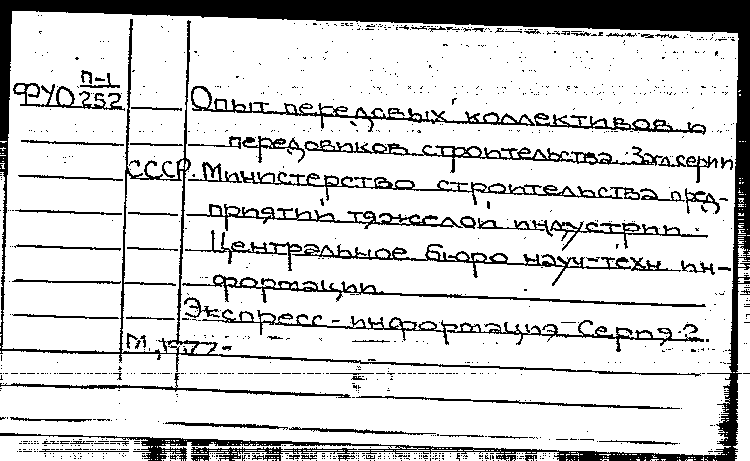 П-1
ФУО 252
Опыт передовых коллективов и
передовиков строительства. Загл. серии
СССР. Министерство строительства пред-
приятий тяжелой индустрии.
Центральное бюро науч-техн. ин-
формации.
Экспресс-информация. Серия 2.
М., 1977-